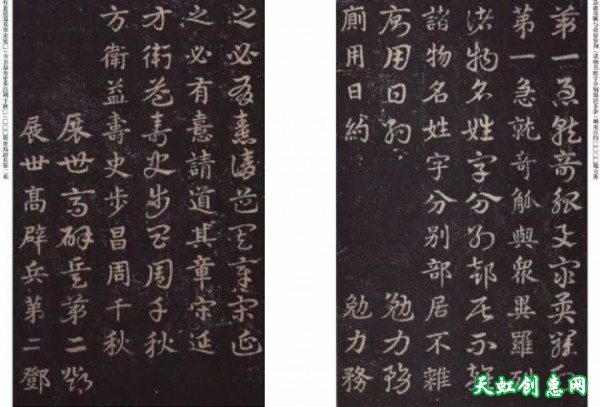 第一急就奇觚與衆異羅列
第一急就奇觚與衆異羅列
諸物名姓字分別部居不雜
諸物名姓字分別部居不雜
廁用日約 勉力務
廁用日約 勉力務
之必有憙請道其章宋延
之必有憙請道其章宋延
方衛益壽史步昌周千秋
方衛益壽史步昌周千秋
展世高辟兵第二鄧
展世高辟兵第二鄧
天虹创惠网